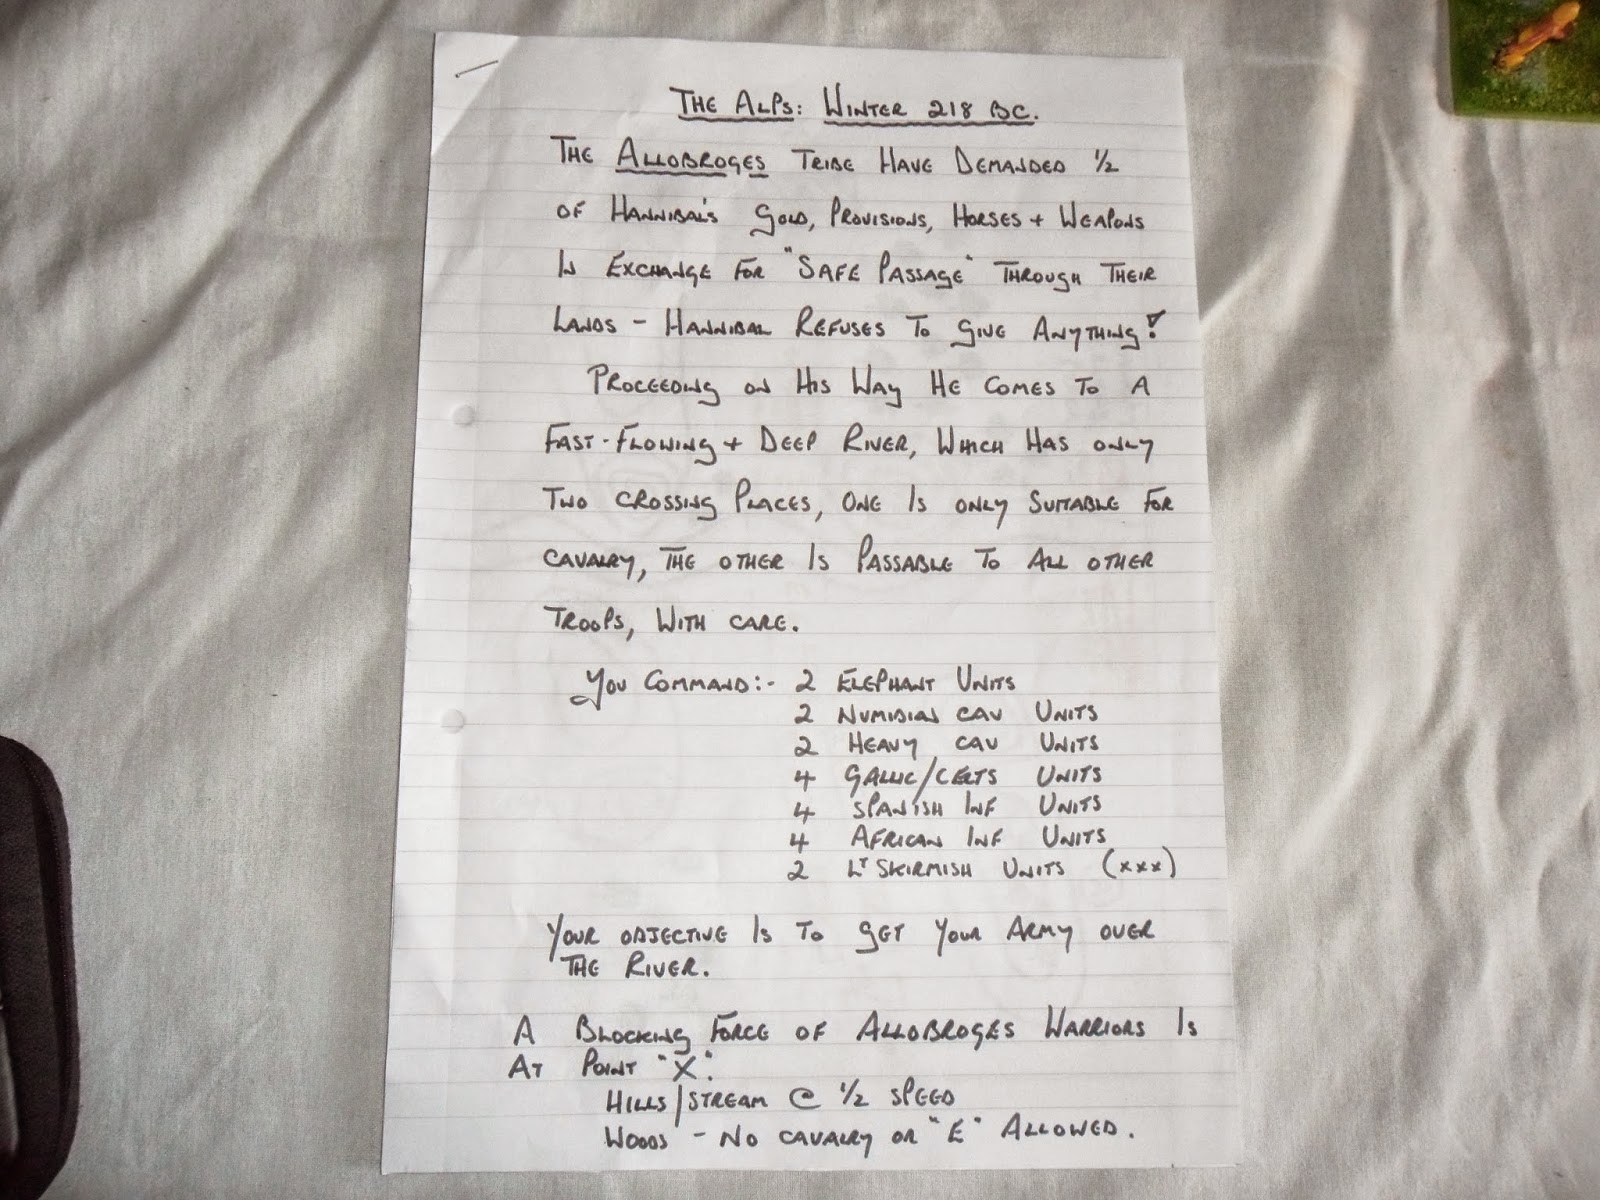 THE ALPS: WINTER 218 BC.
THE ALLOBROGES TRIBE HAVE DEMANDED 1/2
OF HANNIBAL'S GOLD, PROVISIONS, HORSES + WEAPONS
IN EXCHANGE FOR "SAFE PASSAGE" THROUGH THEIR
LANDS - HANNIBAL REFUSES TO GIVE ANYTHING!
PROCEEDING ON HIS WAY HE COMES TO A
FAST-FLOWING + DEEP RIVER, WHICH HAS ONLY
TWO CROSSING PLACES, ONE IS ONLY SUITABLE FOR
CAVALRY, THE OTHER IS PASSABLE TO ALL OTHER
TROOPS, WITH CARE.
YOU COMMAND:- 2 ELEPHANT UNITS
2 NUMIDIAN CAV UNITS
2 HEAVY CAV UNITS
4 GALLIC/CELTS UNITS
4 SPANISH INF UNITS
4 AFRICAN INF UNITS
2 LT SKIRMISH UNITS (xxx)
YOUR OBJECTIVE IS TO GET YOUR ARMY OVER
THE RIVER.
A BLOCKING FORCE OF ALLOBROGES WARRIORS IS
AT POINT "X".
HILLS/STREAM @ 1/2 SPEED
WOODS - NO CAVALRY OR "E" ALLOWED.